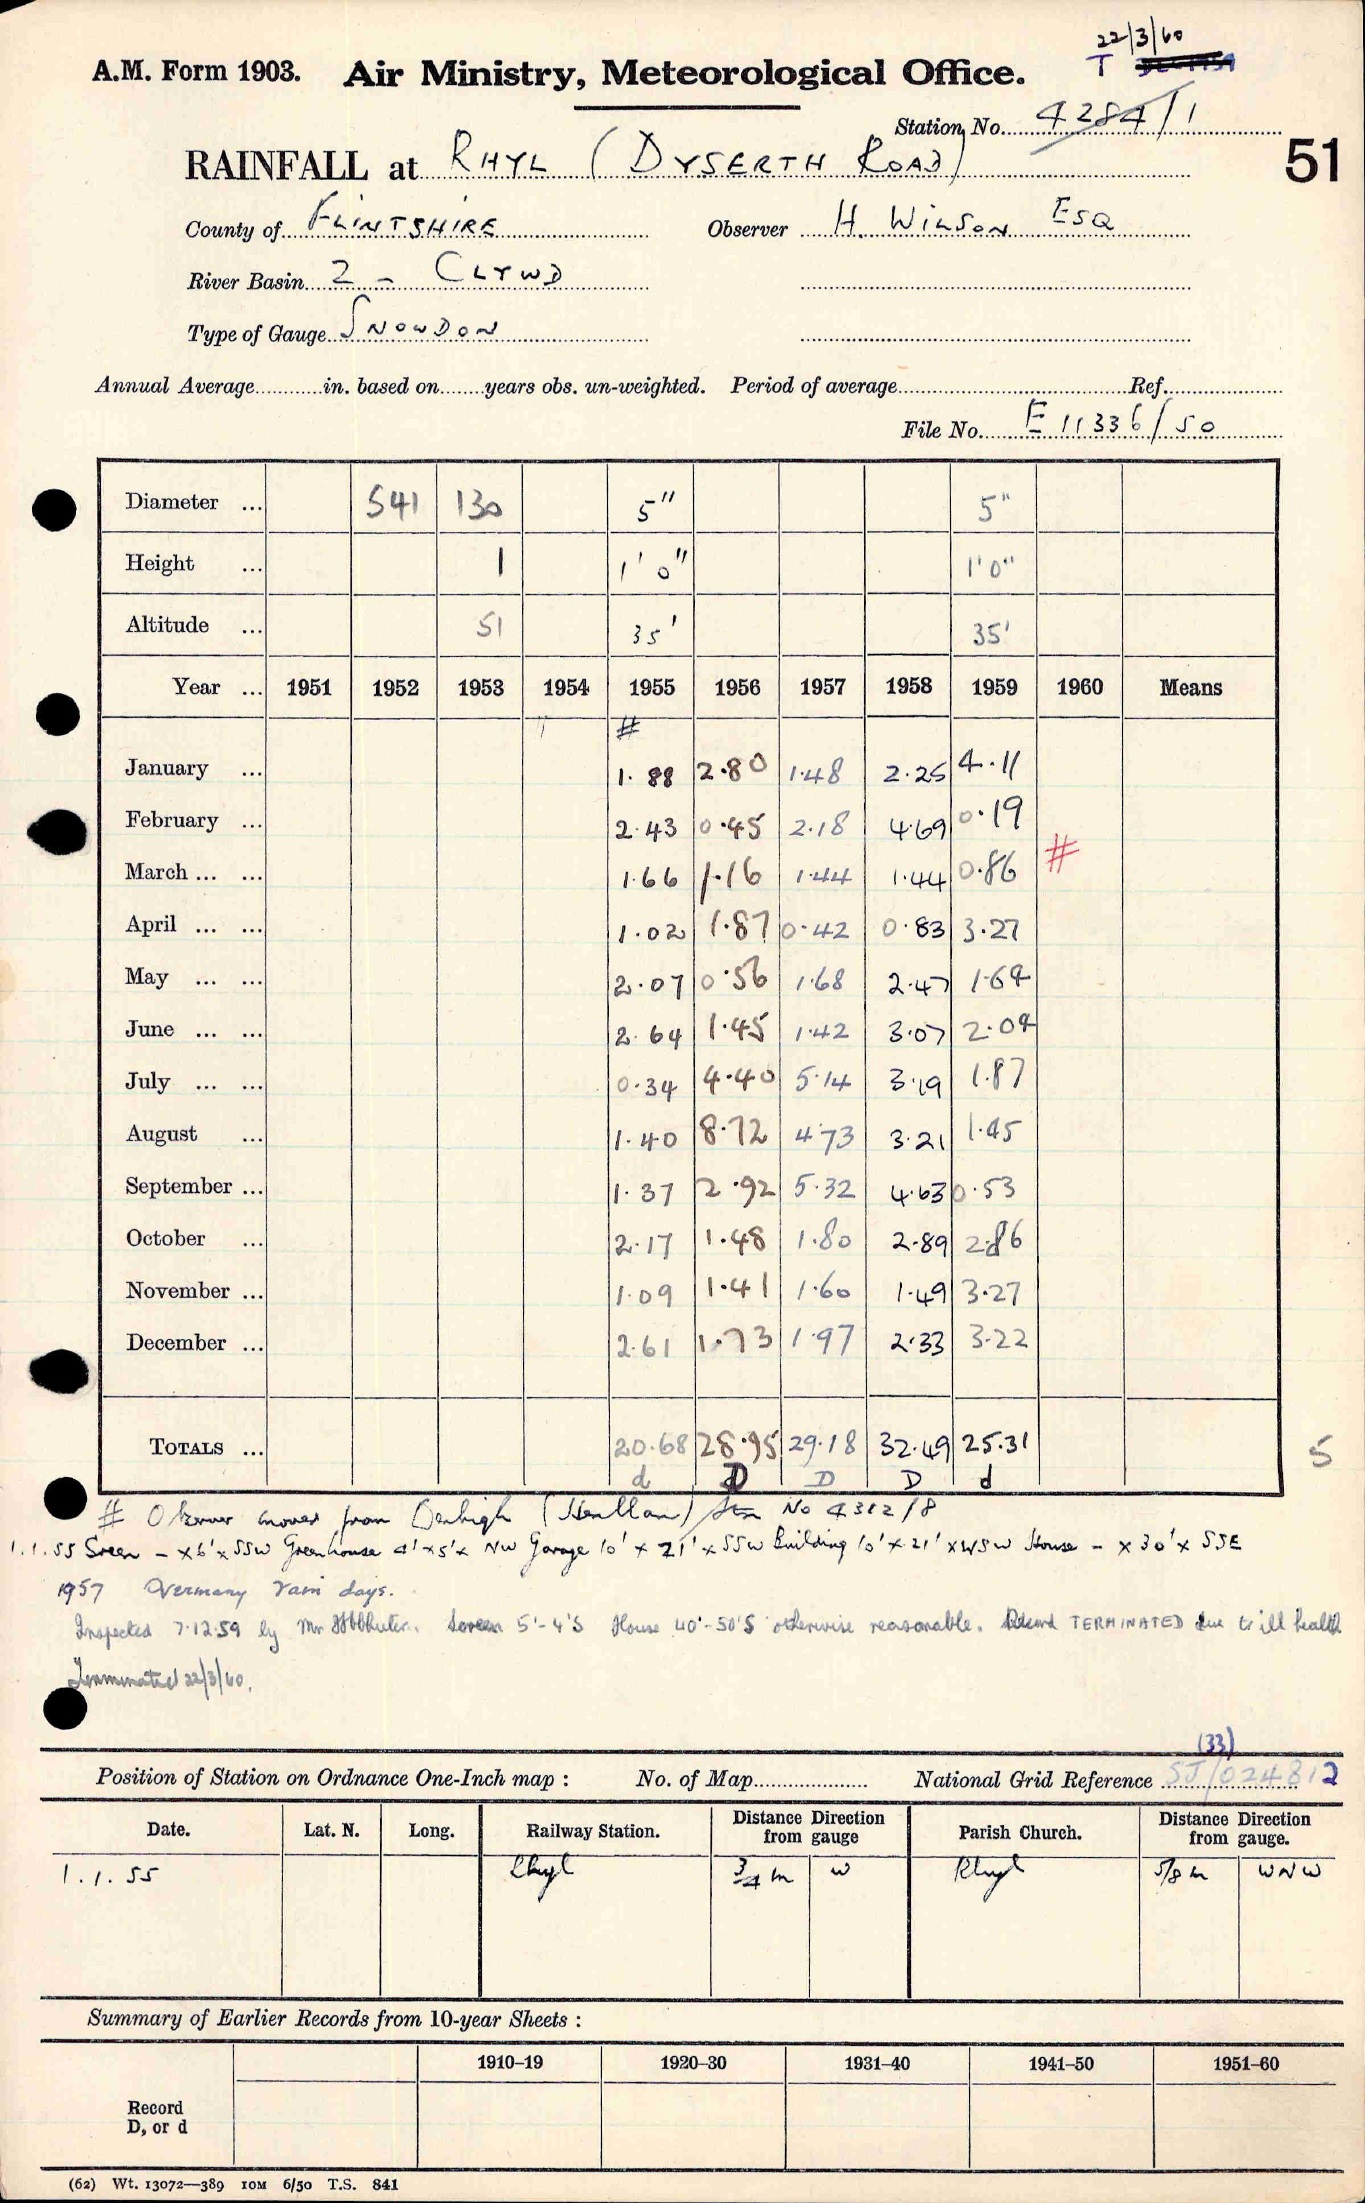 22/3/60
A.M. Form 1903. Air Ministry, Meteorological Office. T
Station No. 4284/1
RAINFALL at RHYL (DYSERTH ROAD) 51
County of FLINTSHIRE Observer H. WILSON ESQ
River Basin 2 - CLYWD
Type of Gauge SNOWDON
Annual Average in. based on years obs. un-weighted. Period of average Ref.
File No. E 11336/50
Diameter ... 541 130 5" 5"
Height ... 1 1' 0" 1'0"
Altitude ... 51 35' 35'
Year ... 1951 1952 1953 1954 1955 1956 1957 1958 1959 1960 Means
#
January ... 1.88 2.80 1.48 2.25 4.11
February ... 2.43 0.45 2.18 4.69 0.19
March ... ... 1.66 1.16 1.44 1.44 0.86 #
April ... ... 1.02 1.87 0.42 0.83 3.27
May ... ... 2.07 0.56 1.68 2.47 1.64
June ... ... 2.64 1.45 1.42 3.07 2.04
July ... ... 0.34 4.40 5.14 3.19 1.87
August ... 1.40 8.72 4.73 3.21 1.45
September ... 1.37 2.92 5.32 4.63 0.53
October ... 2.17 1.48 1.80 2.89 2.86
November ... 1.09 1.41 1.60 1.49 3.27
December ... 2.61 1.73 1.97 2.33 3.22
TOTALS ... 20.68 28.95 29.18 32.49 25.31 5
d D D D d
# Observer moved from Denbigh (Henllan) Stn No 4312/8
1.1.55 Sreen - x 6' x SSW Greenhouse 4' x 5' x NW Garage 10' x 21' x SSW Building 10' x 21' x WSW House - x 30' x SSE
1957 Overmany rain days.
Inspected 7.12.59 by Mr Screen 5'-4'S House 40'-50'S otherwise reasonable. Record TERMINATED due to ill health
Terminated 22/3/60.
(33)
Position of Station on Ordnance One-Inch map : No. of Map National Grid Reference SJ/024812
Date. Lat. N. Long. Railway Station. Distance Direction from gauge Parish Church. Distance Direction from gauge.
1.1.55 Rhyl 3/4 m W Rhyl 5/8 m WNW
Summary of Earlier Records from 10-year Sheets :
1910–19 1920–30 1931–40 1941–50 1951–60
Record
D, or d
(62) Wt. 13072—389 10M 6/50 T.S. 841